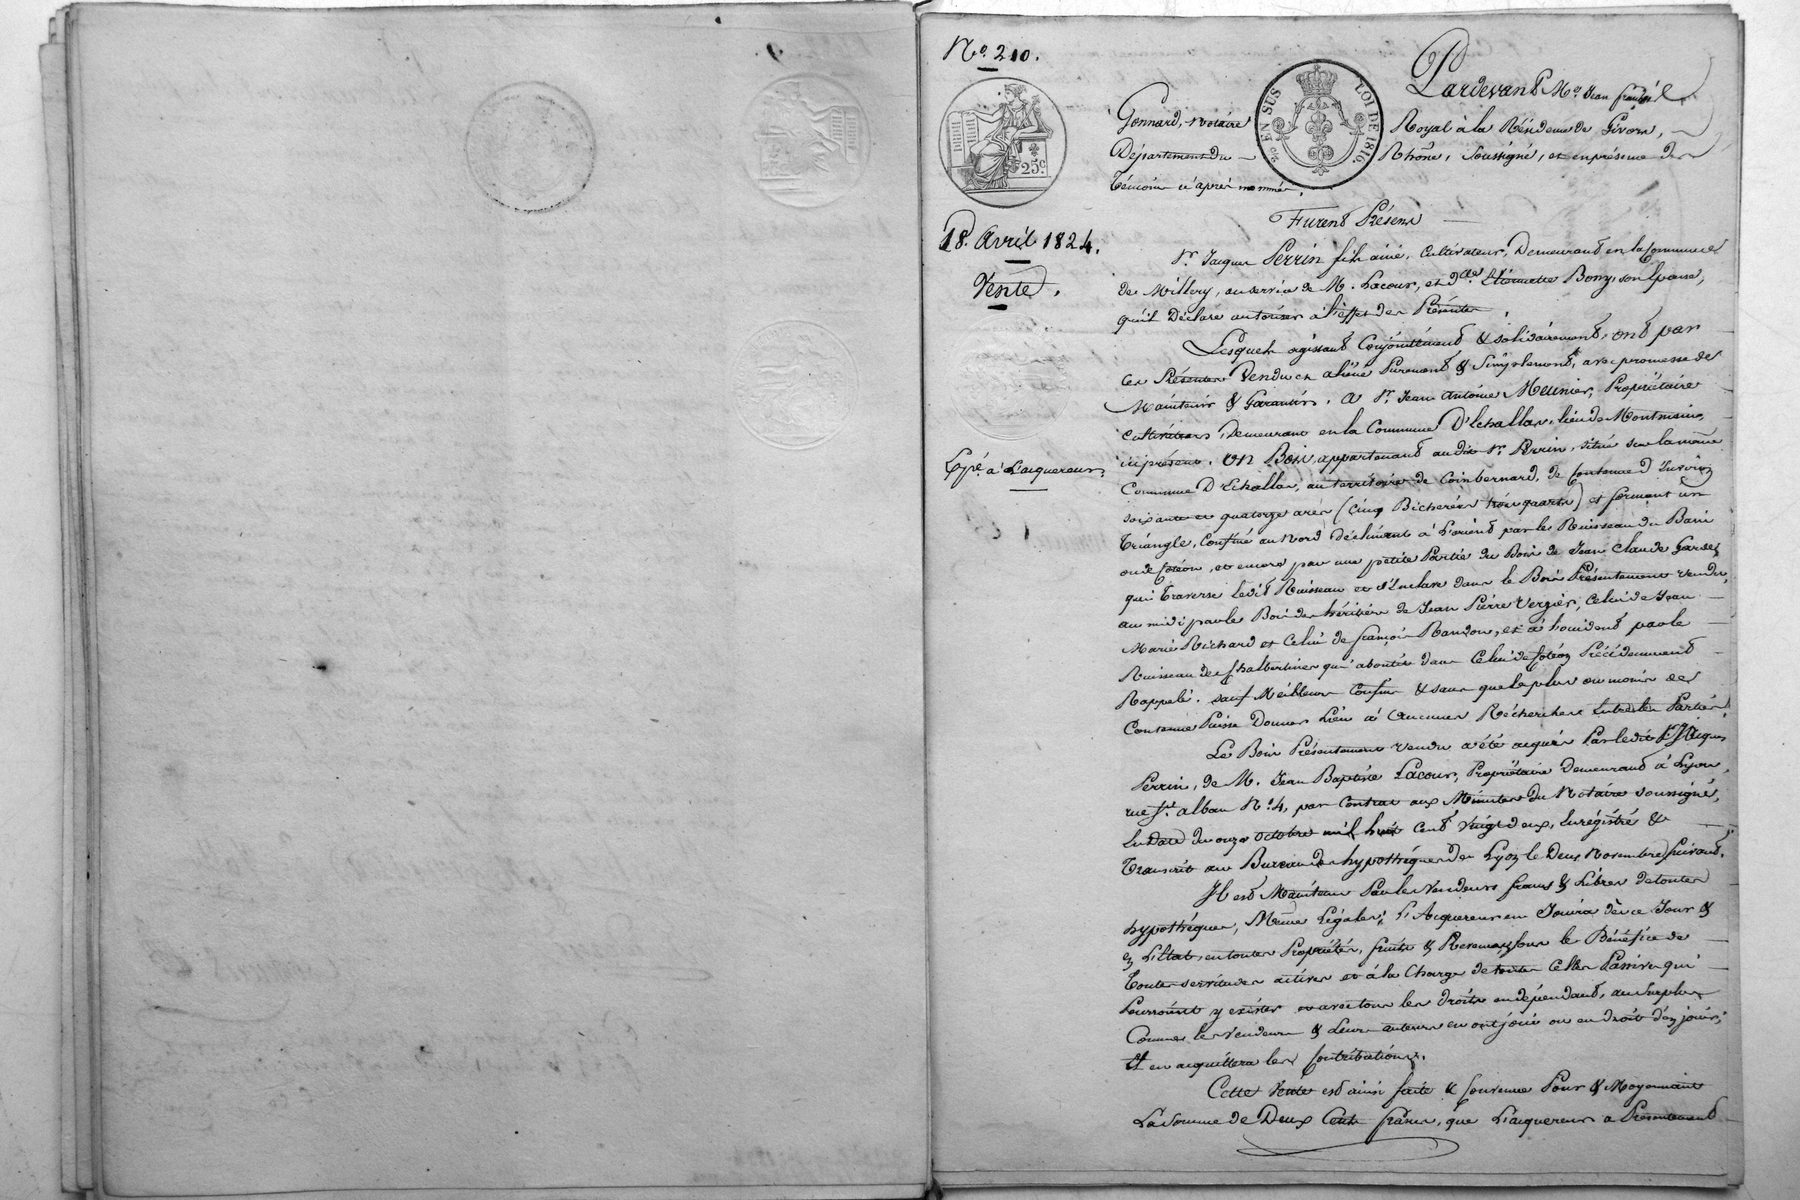 N.º 210.
25.c
20 EN SUS LOI DE 1816.
18. Avril 1824.
Vente.
Expé à l'acquereur
Pardevant M.e Jean
Gonnard, Notaire Royal à la Résidence de Givors,
Département du Rhône, Soussigné, et en présence des
Témoins ci après nommés.
Furent Présens
Sr. Jacques Perrin fils ainé, Cultivateur, Demeurant en la Commune
de Millery, au service de M. Lacour, et d.me Etiennette Bony, son Epouse,
qu'il Déclare autoriser à l'effet des Présentes.
Lesquels agissant Conjointement & solidairement, ont par
ces Présentes Vendu et aliéné Purement & Simplement, avec promesse de
Maintenir & Garantir, A Sr. Jean Antoine Meunier, Propriétaire
cultivateur, Demeurant en la Commune D'Echallas, lieu de
ici présent. Un Bois, appartenant audit Sr. Perrin, situé sur la même
Commune D'Echallas, au territoire de Coinbernard, de Contenue D'Environ
soixante et quatorze ares (Cinq Bicherées trois quarts) et formant un
Triangle, Confiné au Nord déclinant à l'orient par le Ruisseau du Bari
ou de Cotéon, et encore par une petite Partie du Bois de Jean Claude Garde,
qui Traverse Ledit Ruisseau et s'Enclave dans le Bois Présentement vendu,
au midi par le Bois des héritiers de Jean Pierre Vergier, Celui de Jean
Marie Richard et Celui de françois Randon, et à l'occident par le
Ruisseau de qui aboutit dans Celui de Cotéon Précédemment
Rappelé. sauf Meilleurs Confins & sans que le plus ou moins de
Contenue Puisse Donner Lieu à Aucunes Récherches Entre les Parties.
Le Bois Présentement vendu a été acquis Par ledit Sr. Jacques
Perrin, de M. Jean Baptiste Lacour, Propriétaire demeurant à Lyon,
rue St. alban N.º 4, par Contrat aux Minutes du Notaire soussigné,
En Date du onze octobre mil huit Cent Vingt deux, Enrégistré &
Transcrit au Bureau des hypothéques de Lyon le Deux Novembre Suivant.
Il est Maintenu Par les Vendeurs francs & Libres de toutes
hypothéques, Même Légales; L'Acquereur en Jouira dès ce Jour &
En L'Etat, en toutes Propriétés, fruits & Revenus, Sous le Bénéfice de
Toutes servitudes actives et à la Charge de toutes Celles Passives qui
Pourroient y exister et avec tous les droits en dépendant, au Surplus
Comme les Vendeurs & Leurs auteurs en ont joui ou eu droit d'en jouir;
Et en acquittera les Contributions.
Cette Vente est ainsi faite & Convenue Pour & Moyennant
La Somme de Deux Cents francs, que L'acquereur a Présentement